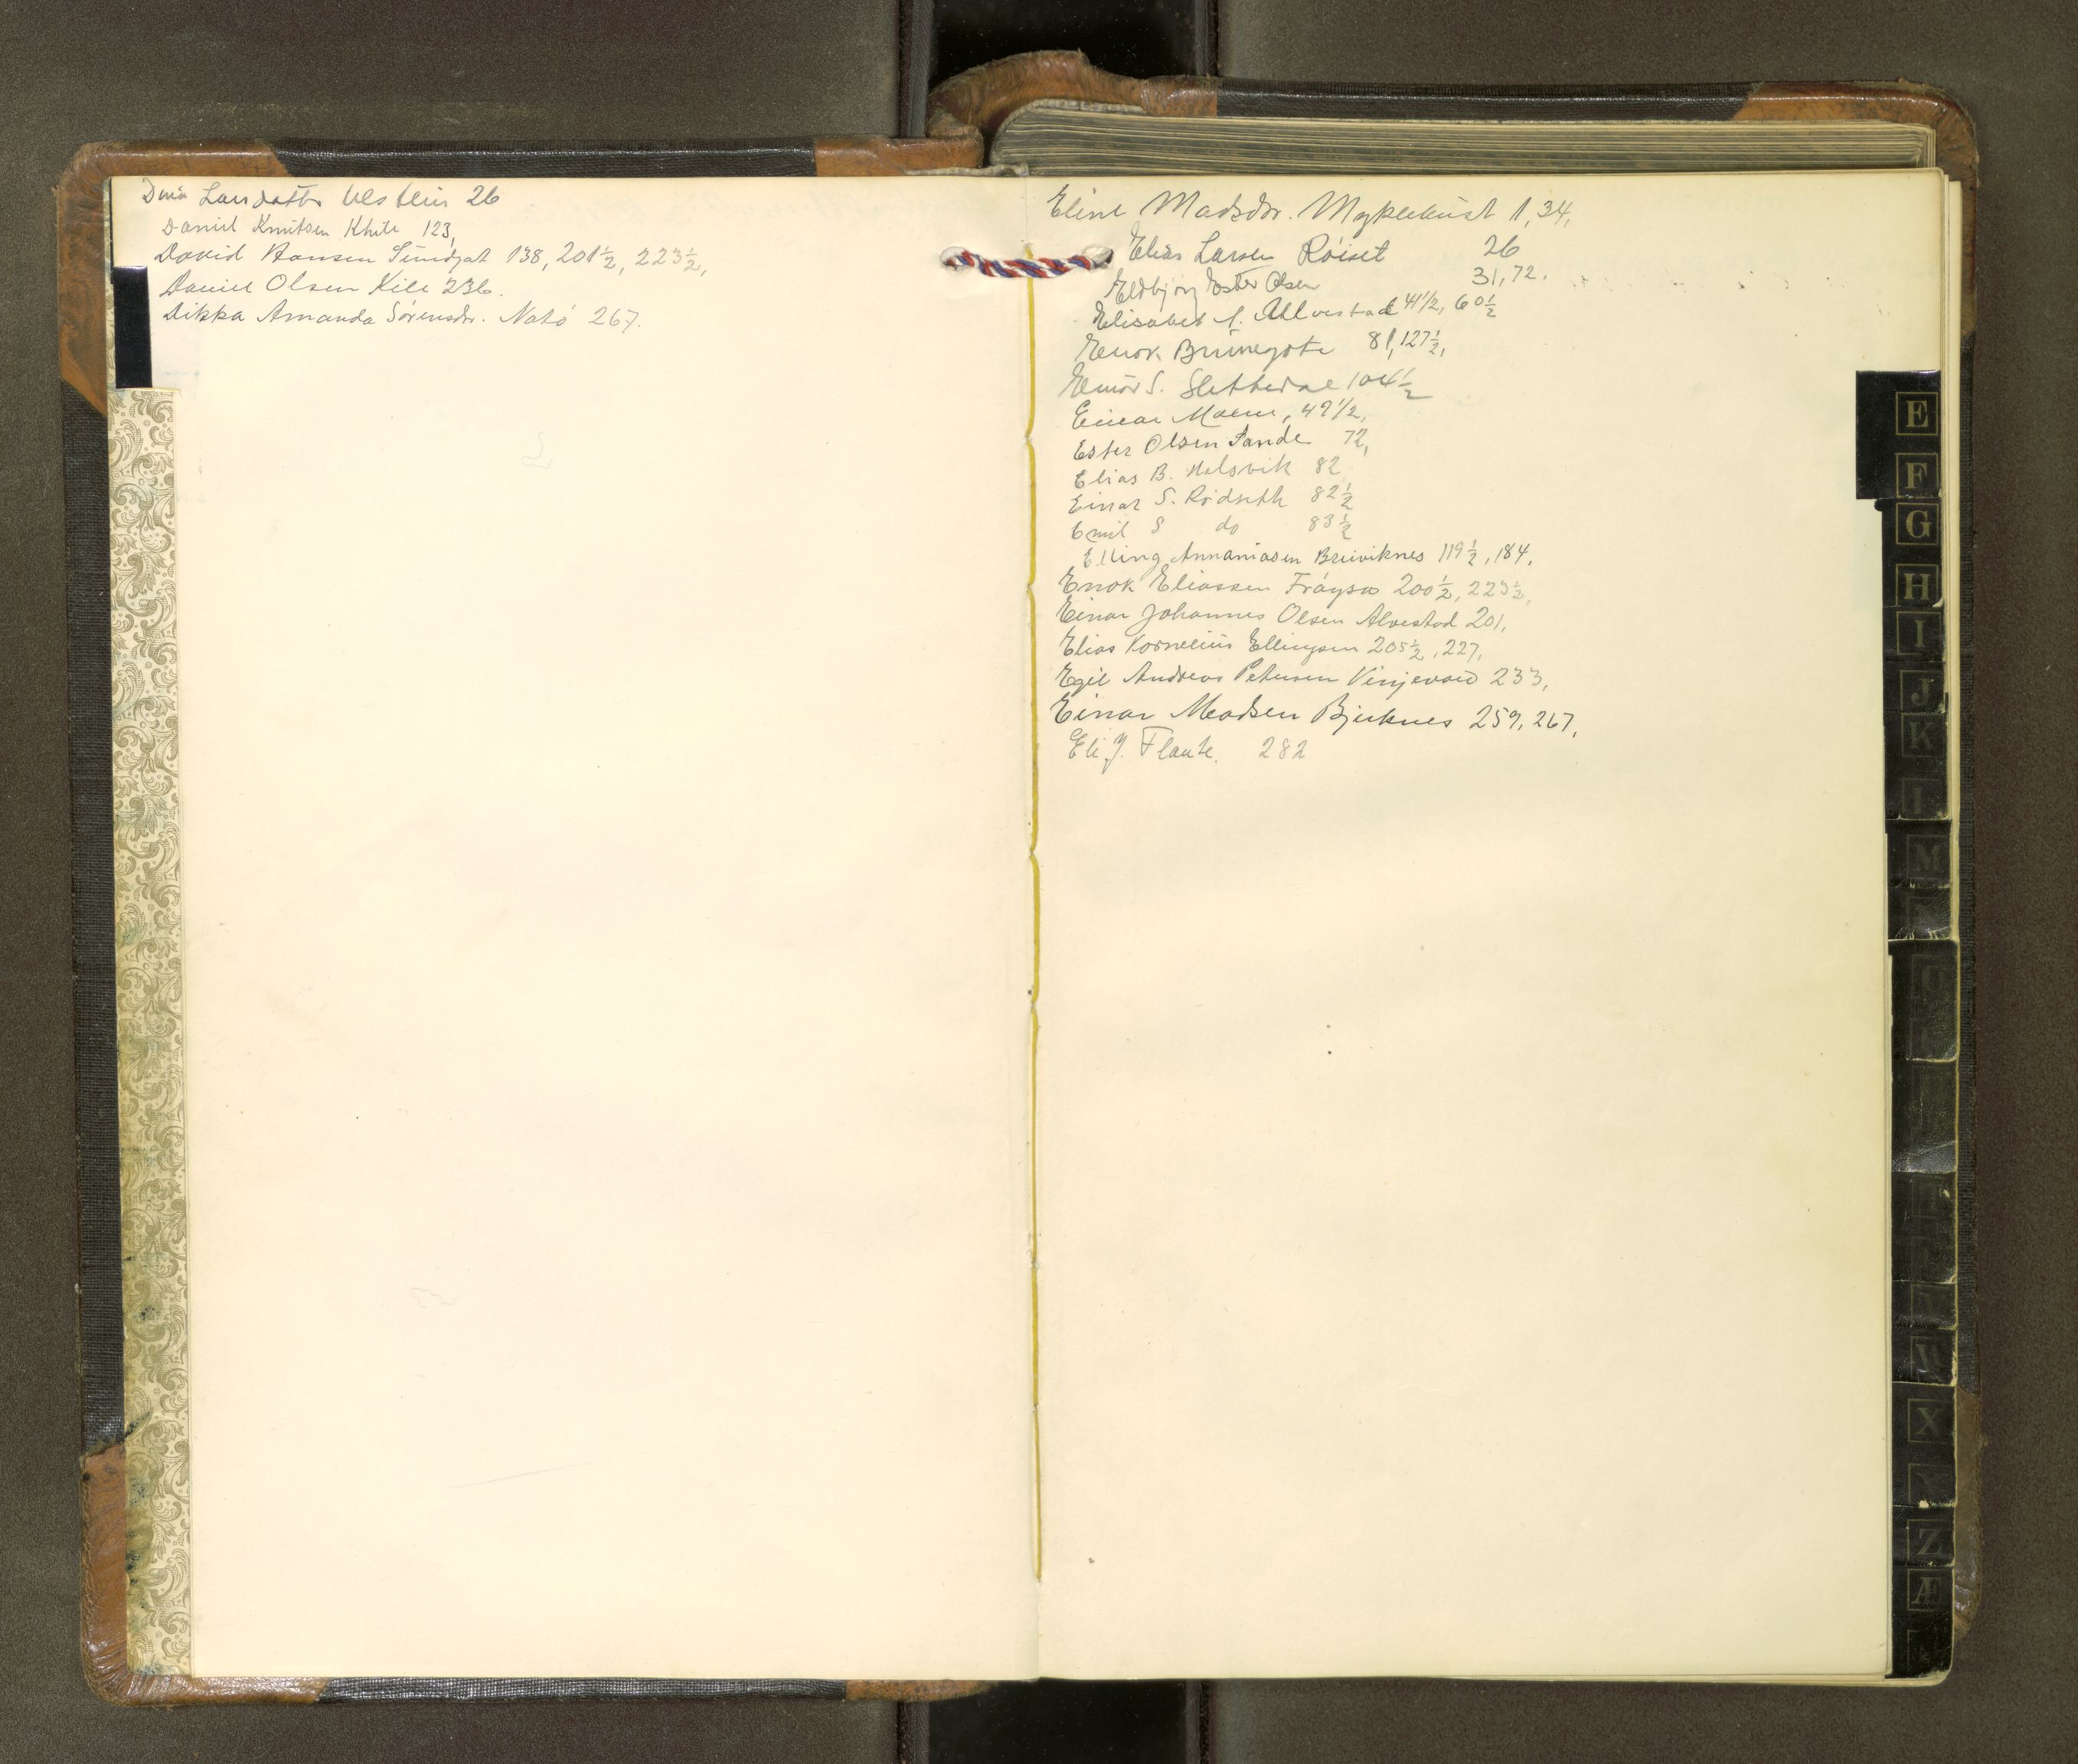 Dina Larsdatter Ulstein 26
Daniel Knutsen Khile 123,
David Hansen Sundgat 138, 201½, 223½,
Daniel Olsen Kile 236.
Dikka Amanda Sörensdr. Natö 267.
Eline Madsdr. Myklebust 1, 34,
Elias Larsen Röiset 26
Eldbjörg Ester Olsen 31, 72.
Elisabet A. Allvestad 41½, 60½
Enok Brunegote 81, 127½,
S. Slettedal 104½
Einar Moene, 49½,
Ester Olsen Sande 72,
Elias B. Halsvik 82
Einar S. Rödseth 82½
Emil S do 83½
Elling Annaniasen Breiviknes 119½, 184.
Enok Eliassen Fröysa 200½, 223½,
Einar Johannes Olsen Alvestad 201,
Elias Kornelius Ellingsen 205½, 227,
Egil Andreas Petersen Vinjevold 233,
Einar Madsen Bjerknes 259, 267,
Eli J. Flaute. 282
E
F
G
H
I
J
K
L
M
X
Z
Æ